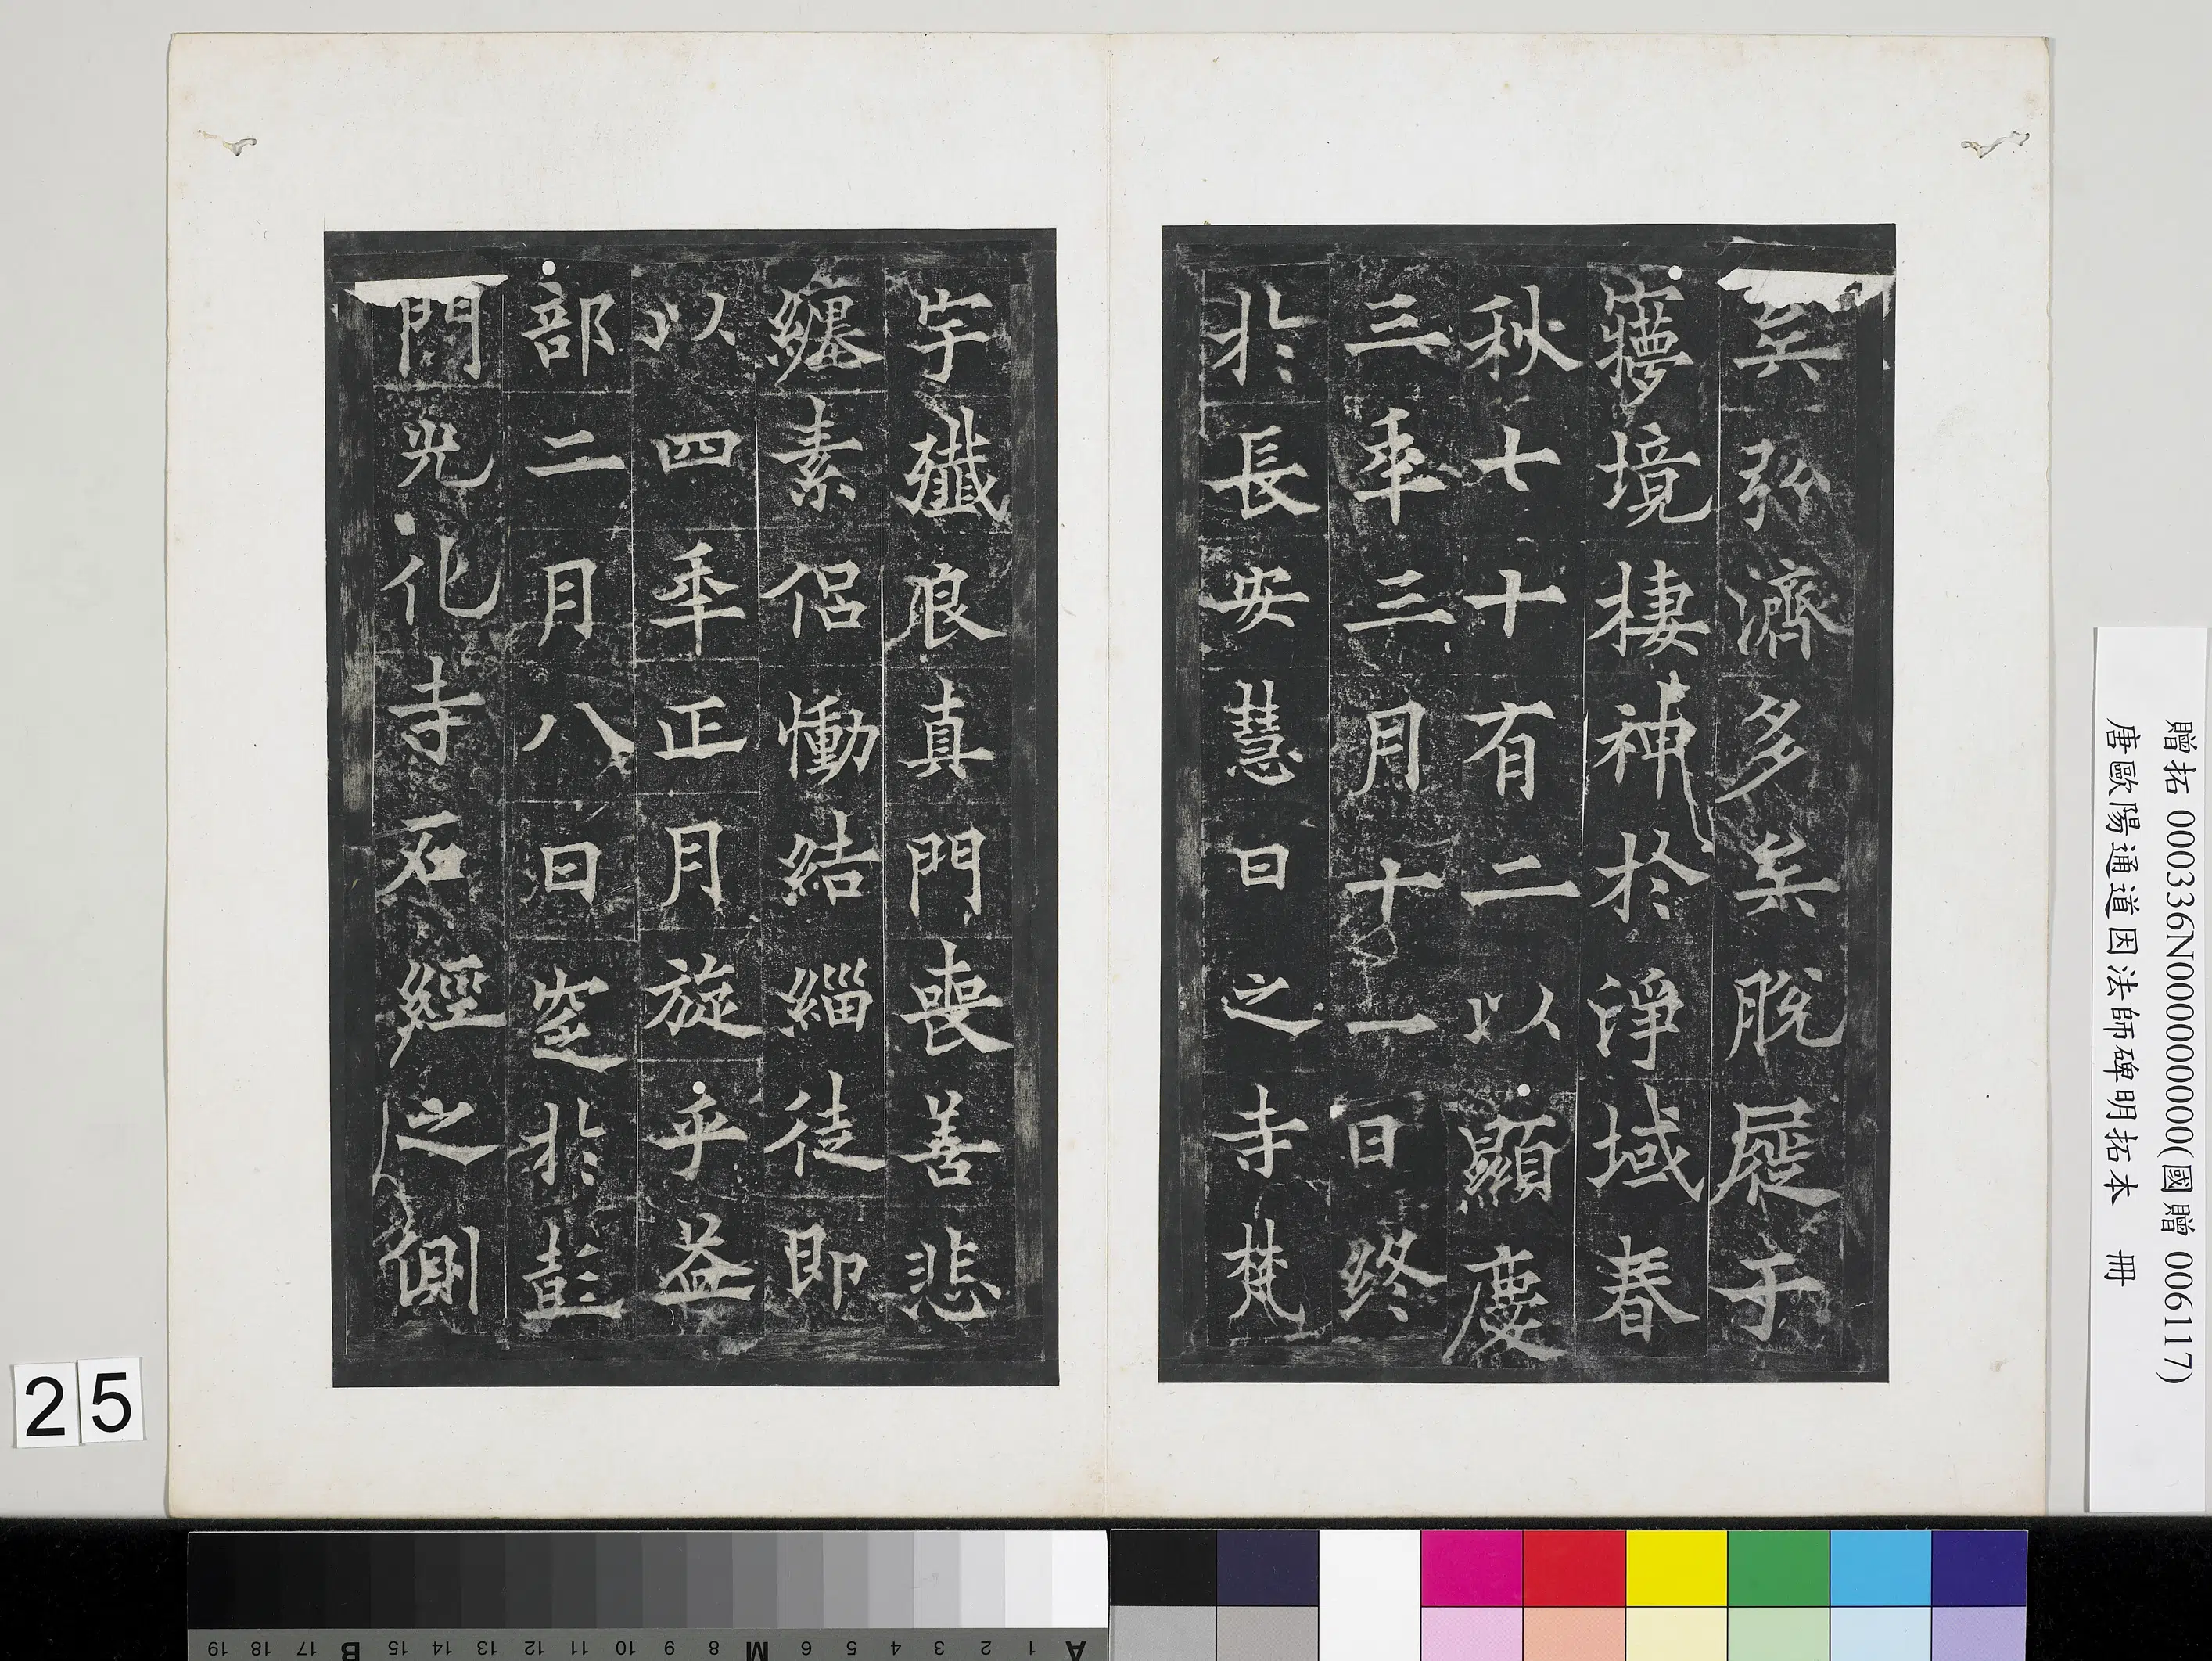 矣弥濟多矣脫屣于
寱境棲神於淨域春
秋七十有二以顯慶
三年三月十一日終
於長安慧日之寺梵
宇殲良真門喪善悲
纏素侶慟結緇徒即
以四年正月旋乎益
部二月八日窆於彭
門光化寺石經之側
贈拓 000336N000000000(國贈 006117)
唐歐陽通道因法師碑明拓本 冊
25
A 1 2 3 4 5 6 M 8 9 10 11 12 13 14 15 B 17 18 19